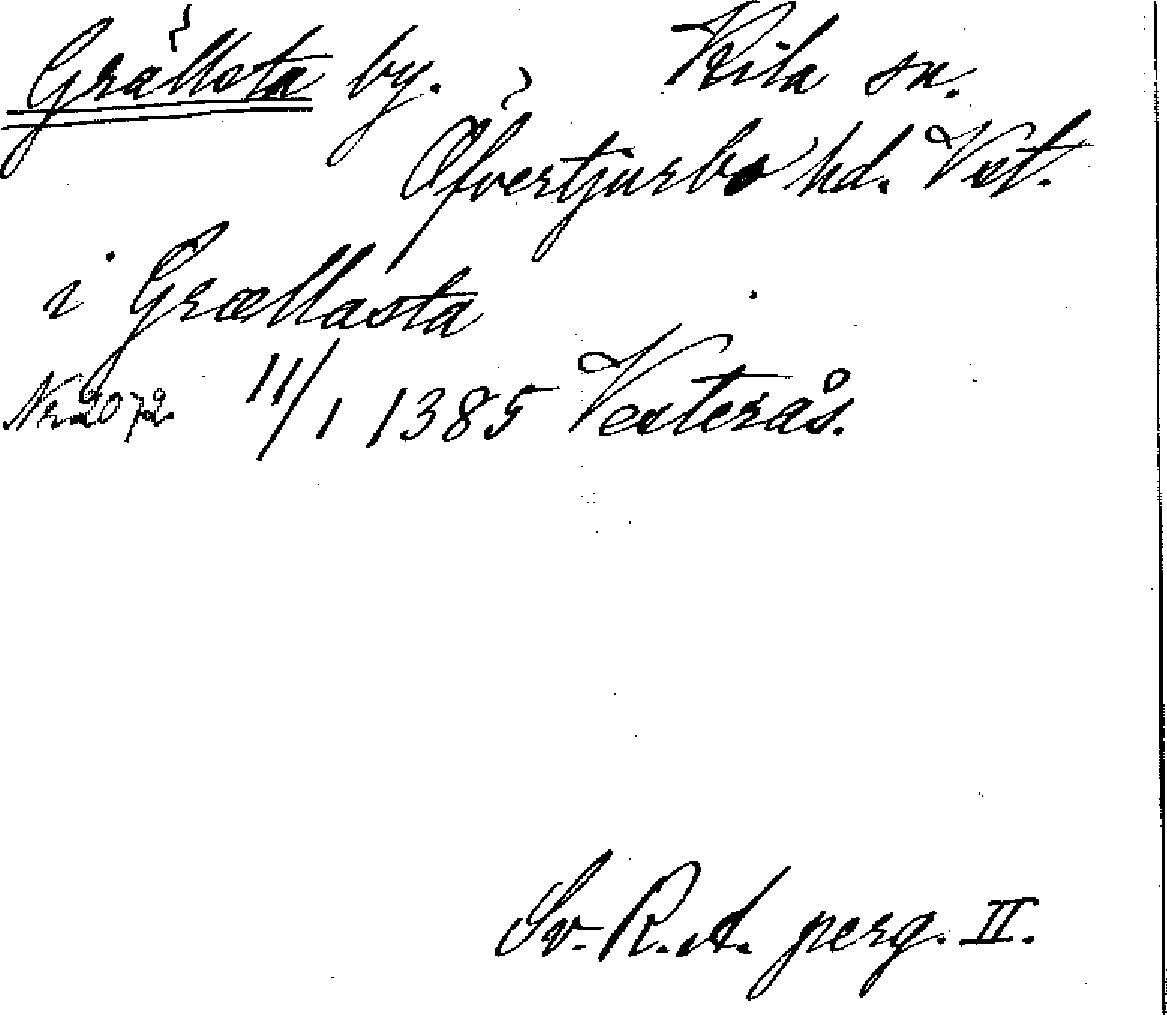 Grällsta by. Kila sn.
Öfvertjurbo hd. Vst.
i Grællasta
Nr 2072 11/1 1385 Vesterås.
Sv. R. A. perg. II.